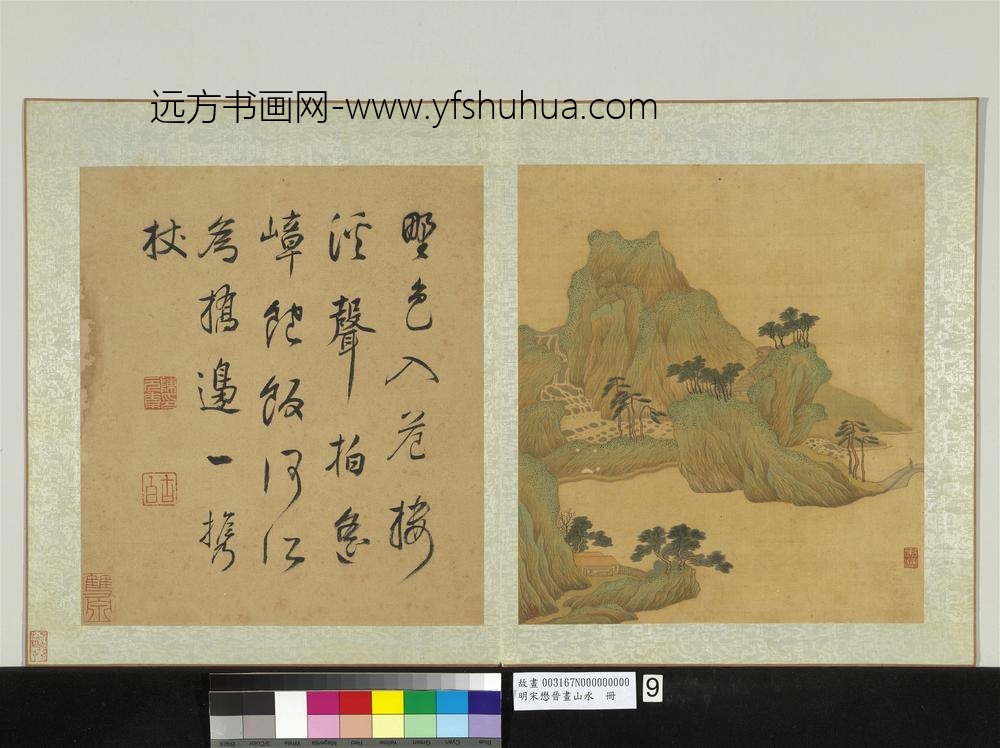 远方书画网-www.yfshuhua.com
野色入樓
溪聲拍遙
嶂飽飯何所
為橋邊一攜
杖
故畫 003167N000000000
明宋懋晉畫山水 冊
9
Blue Cyan Green Yellow Red Magenta White 3/Color Black